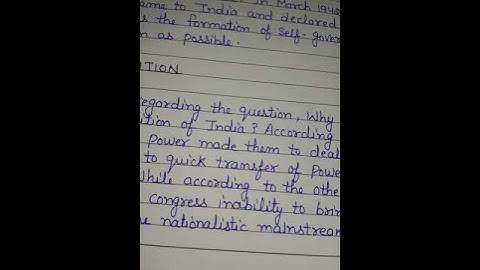 in March 194
ame to India and declared
s the formation of self-gover
n as possible.
TION
egarding the question, Why
ition of India? According
power made them to deal
to quick transfer of Powe
While according to the othe
congress inability to brin
nationalistic mainstrean